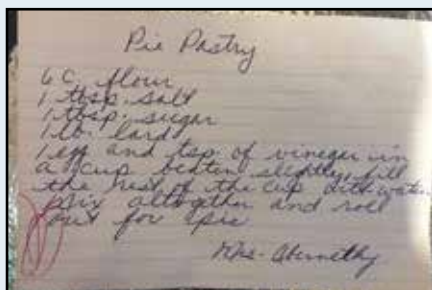 Pie Pastry
6 C. flour
1 tbsp. salt
1 tbsp. sugar
1 lb. lard
1 egg and tsp of vinegar in
a cup beaten slightly, fill
the rest of the cup with water
Mix altogether and roll
out for pie
Mrs. Abernethy